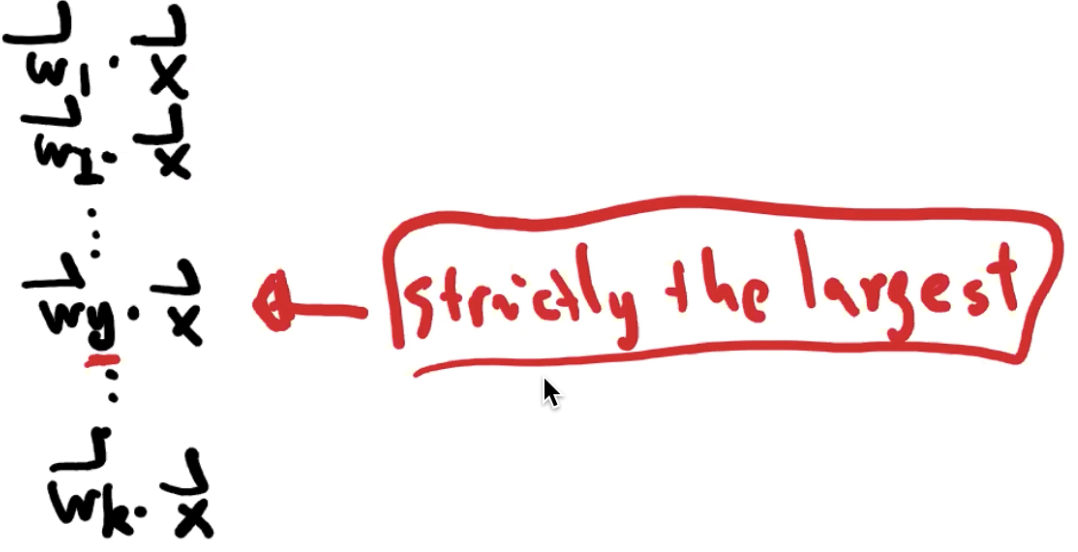 w⃗₁ · x⃗
w⃗₂ · x⃗
⋮
w⃗y · x⃗
strictly the largest
⋮
w⃗k · x⃗